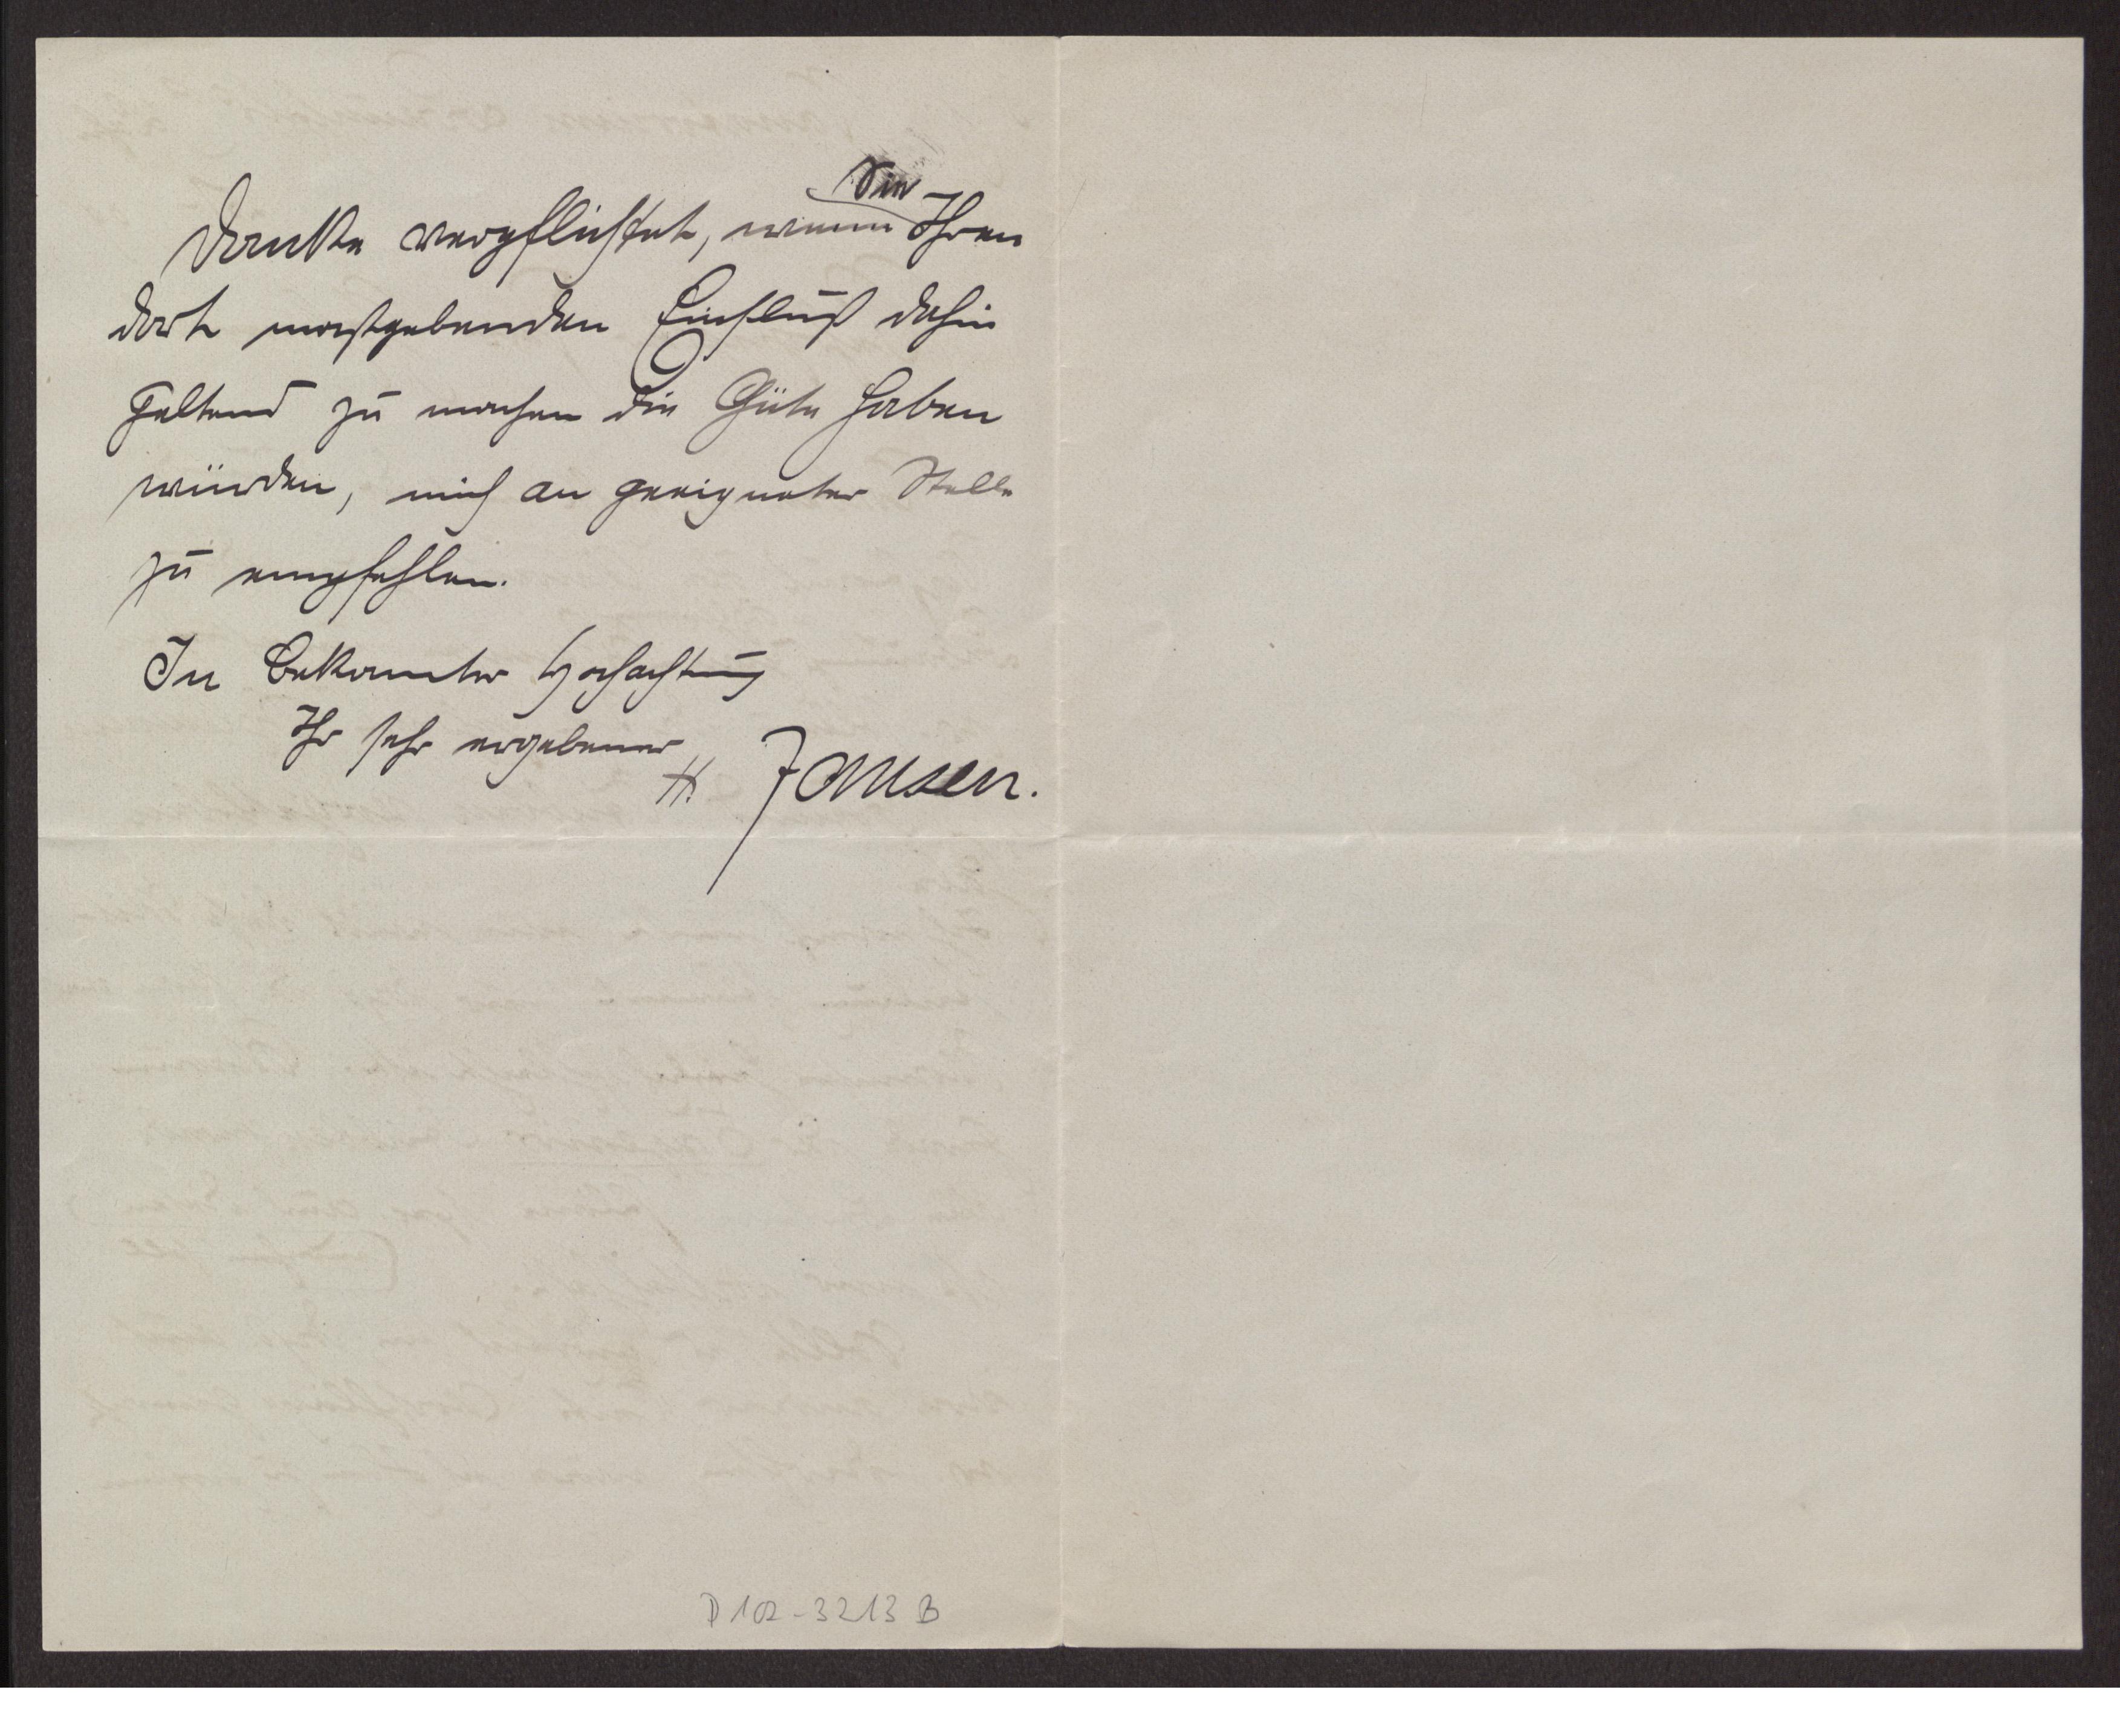 Danke verpflichtet, wenn Sie Ihren
dort maßgebenden Einfluß dahin
geltend zu machen die Güte haben
würden, mich an geeigneter Stelle
zu empfehlen.
In bekannter Hochachtung
Ihr sehr ergebener
H. Jansen.
D 102-3213 B